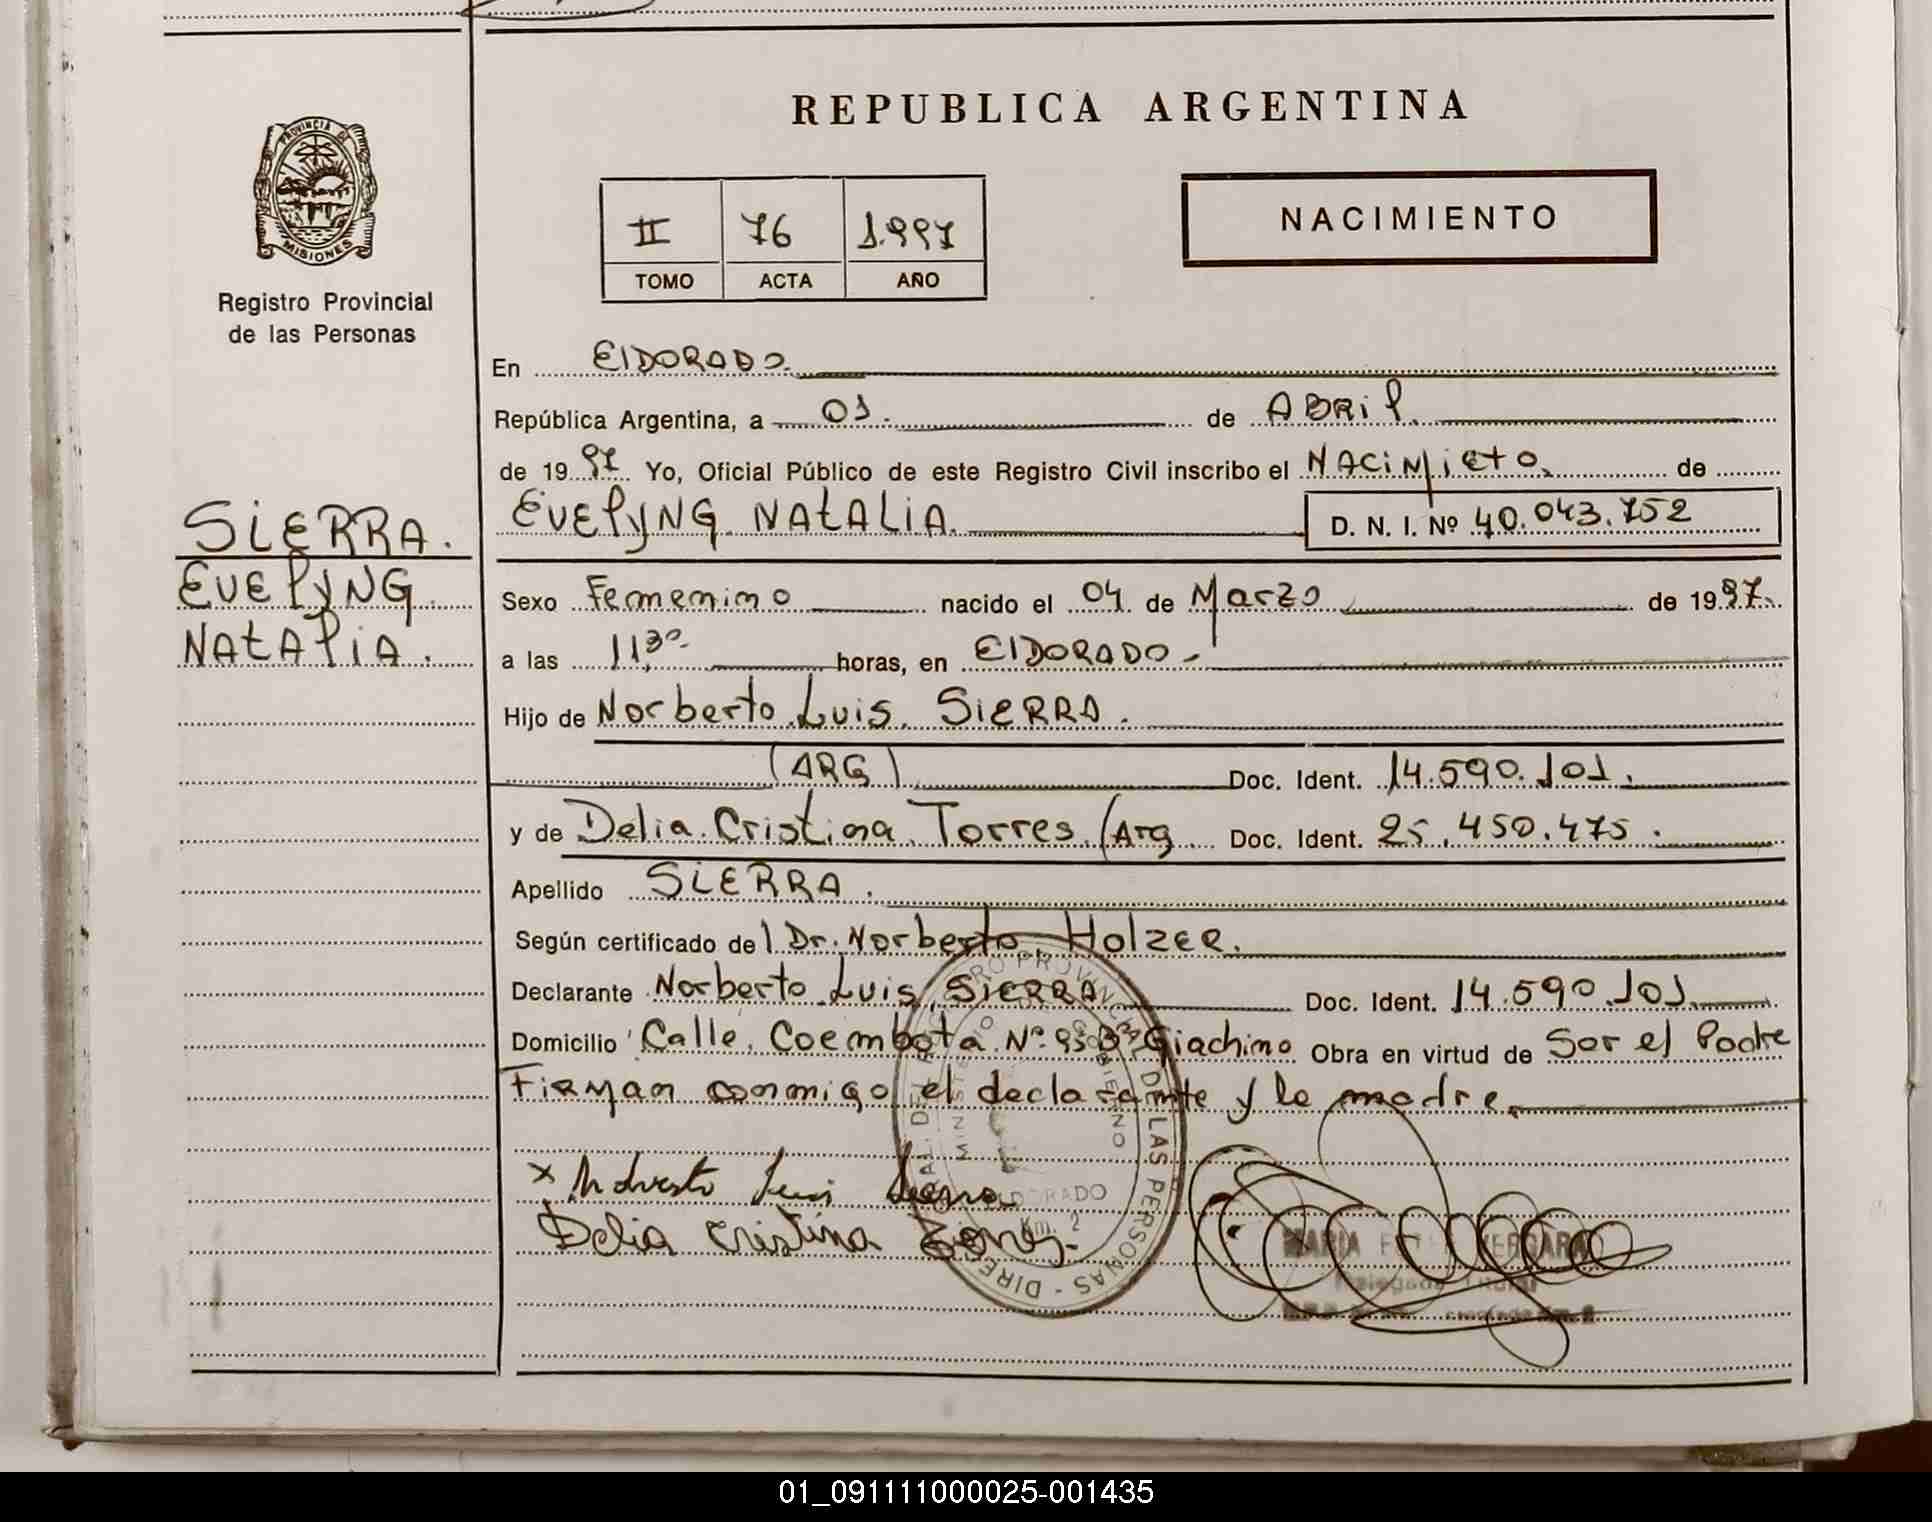 REPUBLICA ARGENTINA
PROVINCIA DE
MISIONES
Registro Provincial
de las Personas
II 76 1.997
TOMO ACTA AÑO
NACIMIENTO
En ElDORADO.
República Argentina, a 01. de ABRil.
de 1997 Yo, Oficial Público de este Registro Civil inscribo el NACiMieto de
EVElyNG NAtALiA. D. N. I. Nº 40.043.752
SiERRA.
EVElyNG
NAtAliA.
Sexo Femenino nacido el 04 de Marzo de 1997.
a las 11,30 horas, en ElDORADO -
Hijo de Norberto Luis. SiERRA.
(ARG) Doc. Ident. 14.590.101.
y de Delia Cristina Torres (Arg Doc. Ident. 25.450.475.
Apellido SiERRA.
Según certificado del Dr. Norberto HolzER.
Declarante Norberto Luis SiERRA Doc. Ident. 14.590.101
Domicilio Calle Coembota Nº Giachino Obra en virtud de Ser el Padre
Firman conmigo el declarante y la madre.
x Norberto Luis Sierra
Delia Cristina Torres.
MINISTERIO GOBIERNO
ELDORADO
Km. 2
MARIA VERGARA
01_091111000025-001435